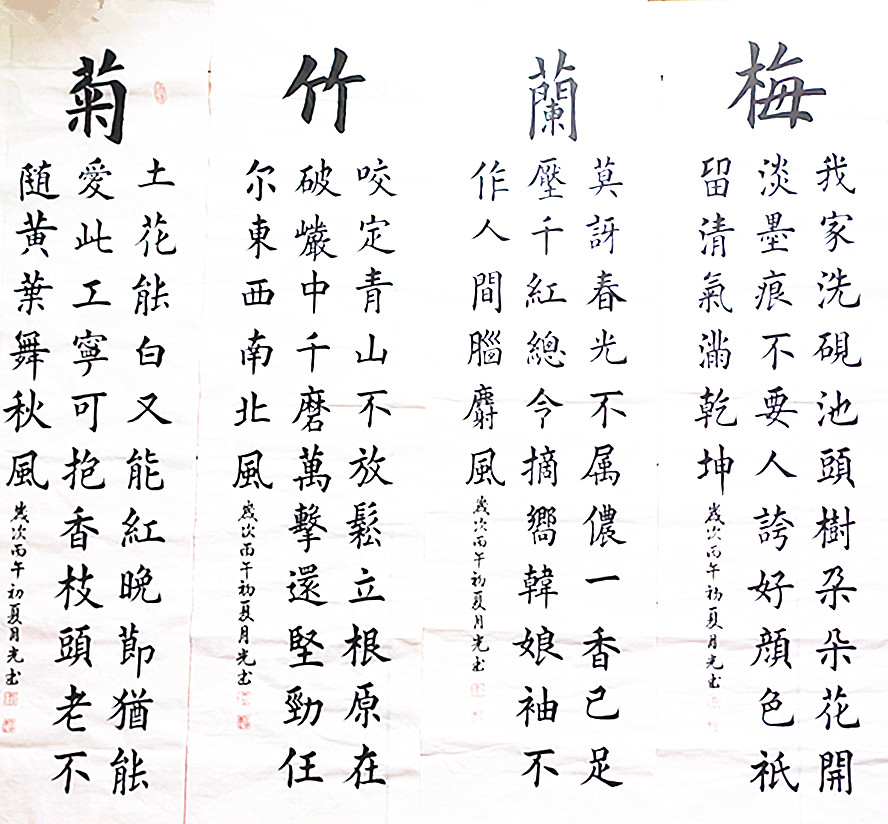 梅
我家洗硯池頭樹朶朵花開
淡墨痕不要人誇好顔色祇
留清氣滿乾坤
歲次丙午初夏月光书
蘭
莫訝春光不属儂一香已足
壓千紅總令摘嚮韓娘袖不
作人間腦麝風
歲次丙午初夏月光书
竹
咬定青山不放鬆立根原在
破巖中千磨萬擊還堅勁任
尔東西南北風
歲次丙午初夏月光书
菊
土花能白又能紅晚節猶能
愛此工寧可抱香枝頭老不
随黄葉舞秋風
歲次丙午初夏月光书